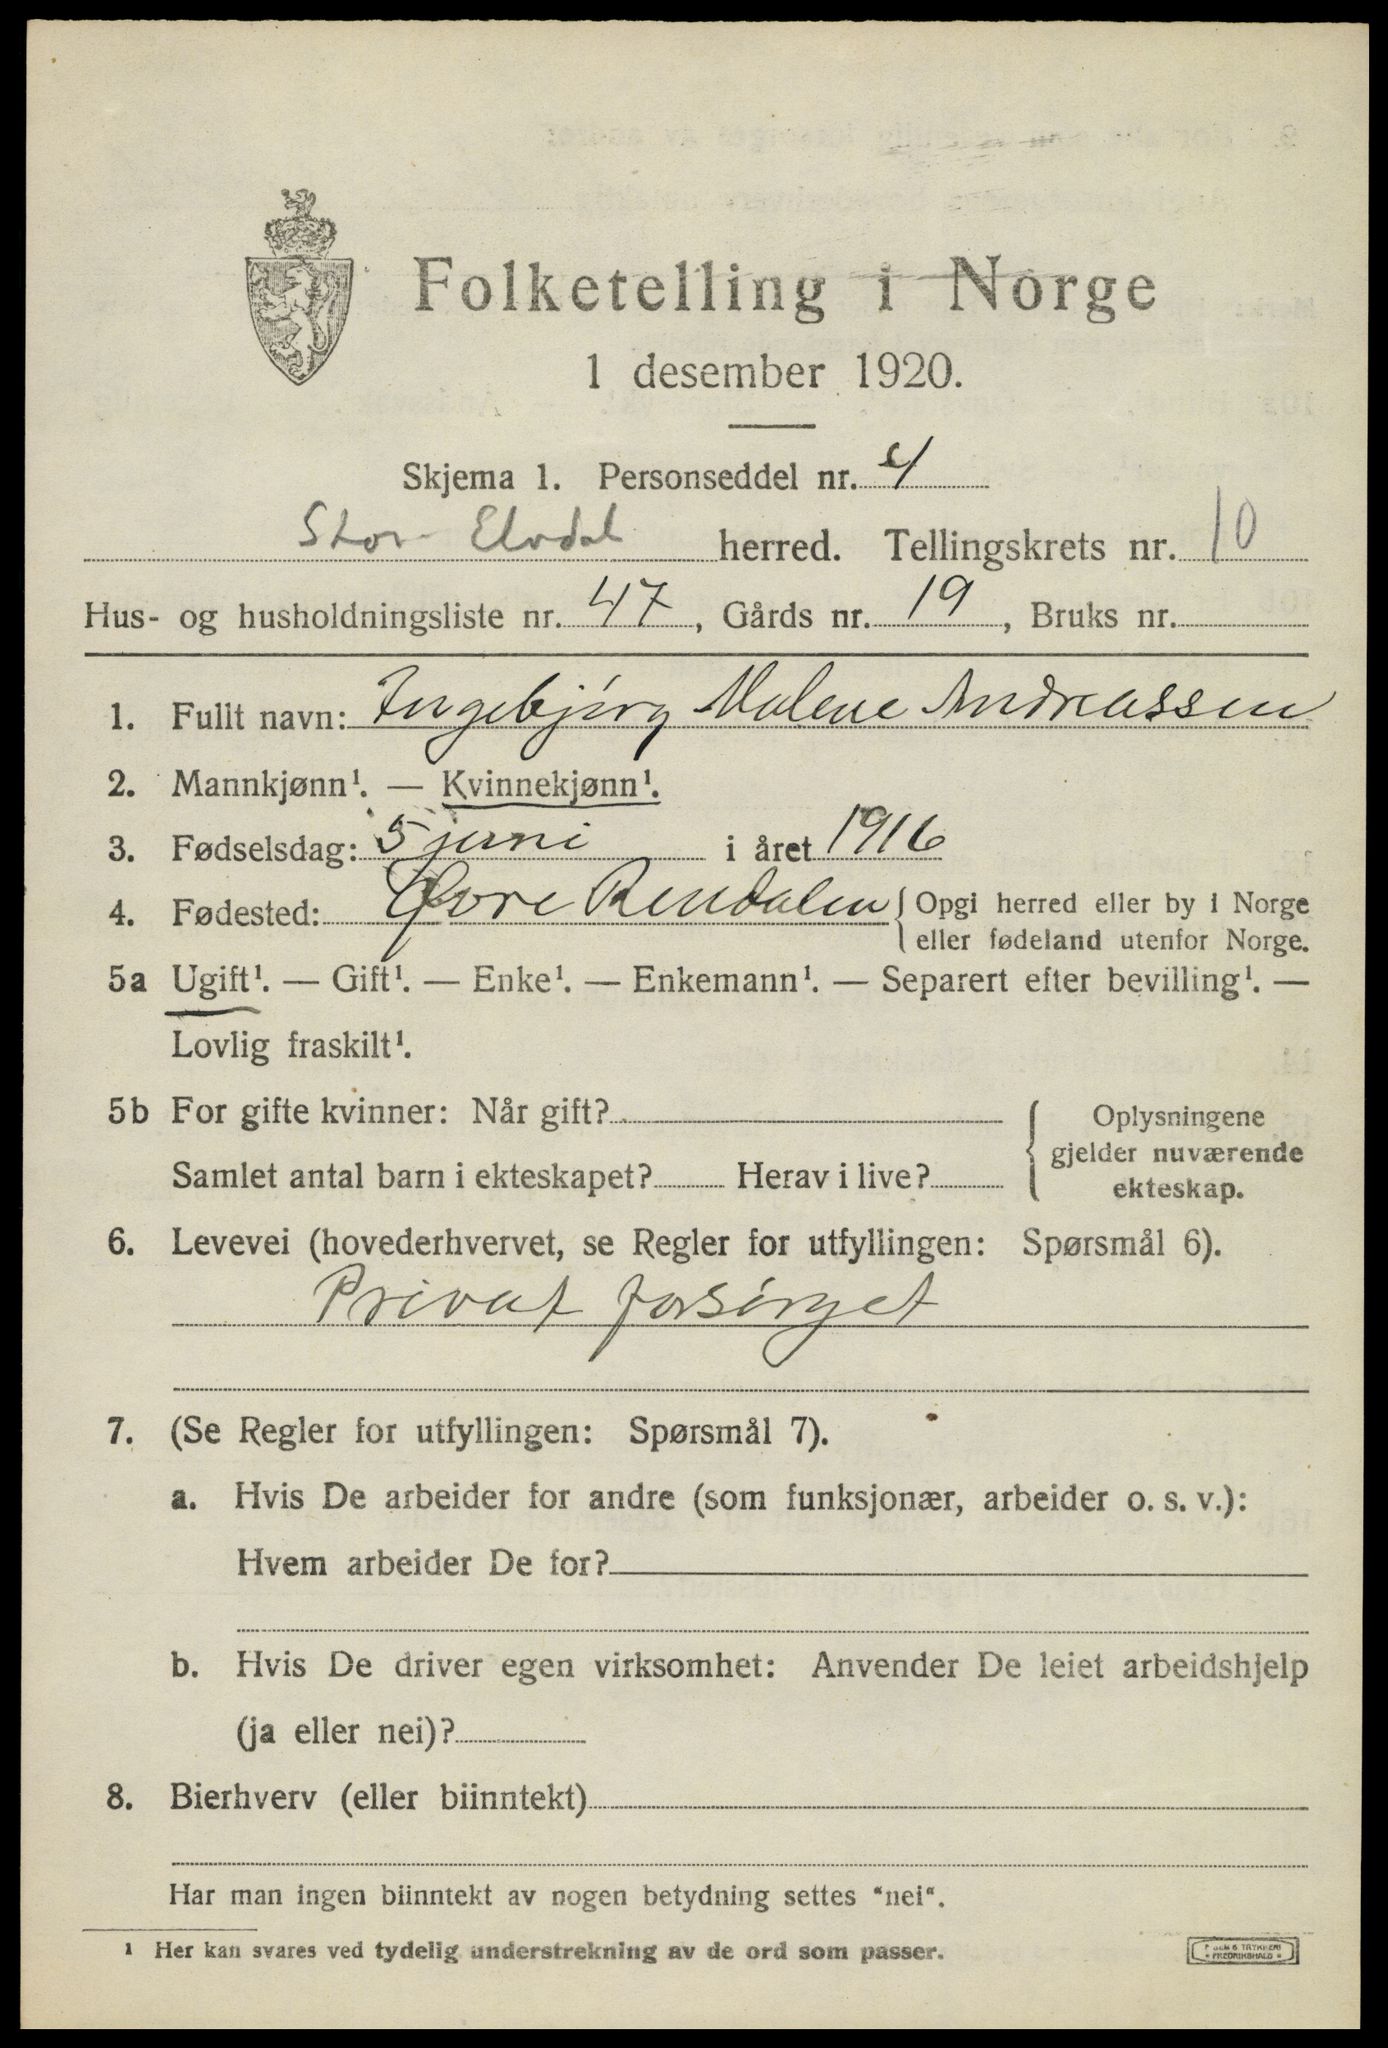 Folketelling i Norge
1 desember 1920.
Skjema 1. Personseddel nr. 4
Stor-Elvdal herred. Tellingskrets nr. 10
Hus- og husholdningsliste nr. 47, Gårds nr. 19, Bruks nr.
1. Fullt navn: Ingebjørg Malene Andreassen
2. Mannkjønn¹. — Kvinnekjønn¹.
3. Fødselsdag: 5 juni i året 1916
4. Fødested: Øvre Rendalen { Opgi herred eller by i Norge
eller fødeland utenfor Norge.
5a Ugift¹. — Gift¹. — Enke¹. — Enkemann¹. — Separert efter bevilling¹. —
Lovlig fraskilt¹.
5b For gifte kvinner: Når gift?
Samlet antal barn i ekteskapet? Herav i live?
{ Oplysningene
gjelder nuværende
ekteskap.
6. Levevei (hovederhvervet, se Regler for utfyllingen: Spørsmål 6).
Privat forsørget
7. (Se Regler for utfyllingen: Spørsmål 7).
a. Hvis De arbeider for andre (som funksjonær, arbeider o. s. v.):
Hvem arbeider De for?
b. Hvis De driver egen virksomhet: Anvender De leiet arbeidshjelp
(ja eller nei)?
8. Bierhverv (eller biinntekt)
Har man ingen biinntekt av nogen betydning settes "nei".
¹ Her kan svares ved tydelig understrekning av de ord som passer.
TRYKKERI
FREDRIKSHALD